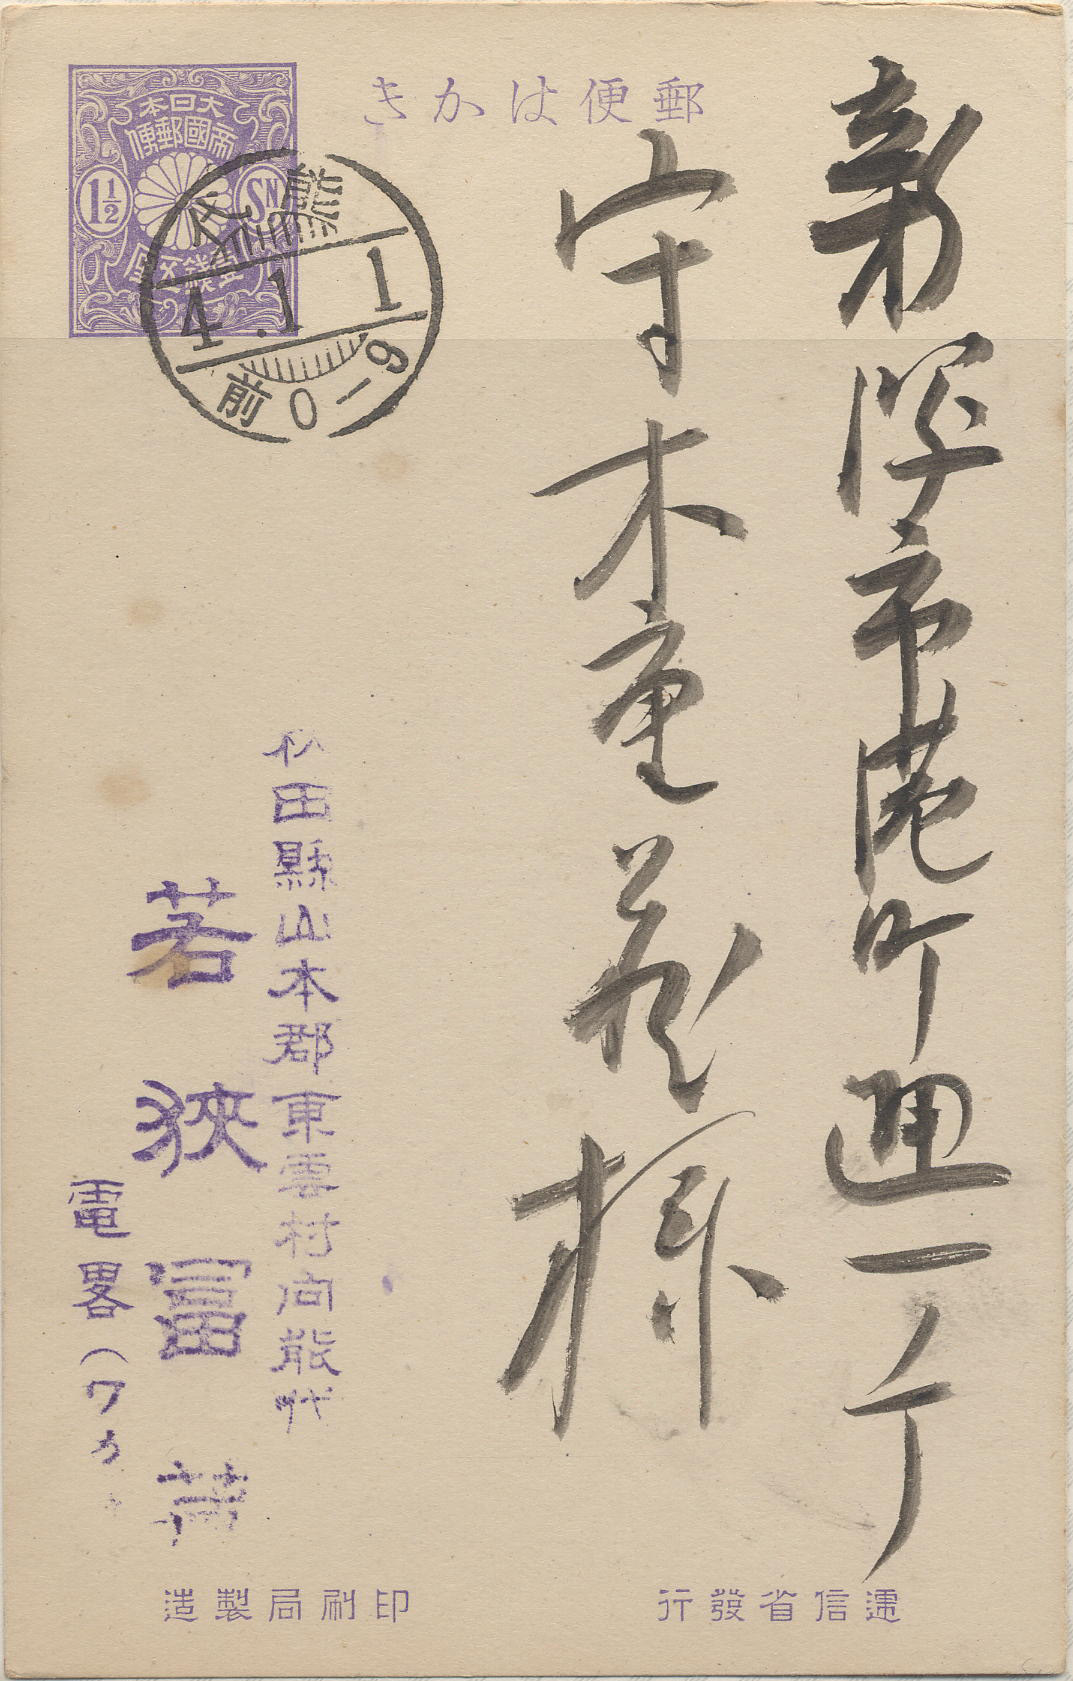 郵便はかき
大日本
帝國郵便
1½
SN
壹錢五厘
4.1.1
前0-9
新潟市港町通一丁
守木重蔵様
秋田縣山本郡東雲村向能代
若狹富
電畧(ワカ
遞信省發行
印刷局製造